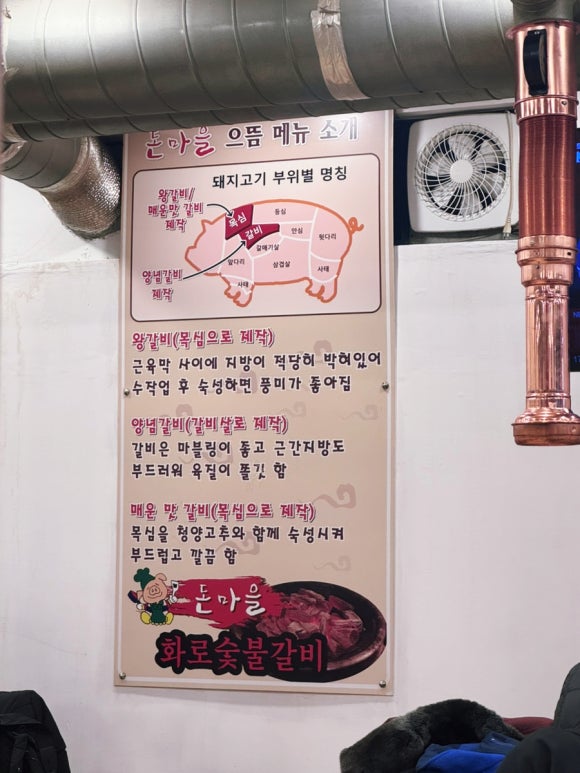 돈마을 으뜸 메뉴 소개
돼지고기 부위별 명칭
왕갈비/
매운맛 갈비
제작
목심
등심
갈비
안심
뒷다리
갈매기살
앞다리
삼겹살
사태
사태
양념갈비
제작
왕갈비(목심으로 제작)
근육막 사이에 지방이 적당히 박혀있어
수작업 후 숙성하면 풍미가 좋아짐
양념갈비(갈비살로 제작)
갈비은 마블링이 좋고 근간지방도
부드러워 육질이 쫄깃 함
매운 맛 갈비(목심으로 제작)
목심을 청양고추와 함께 숙성시켜
부드럽고 깔끔 함
돈마을
화로숯불갈비